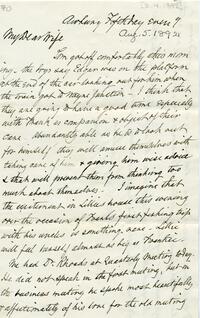 Fifth day eve 9
Aug. 5. 1892
My Dear Wife
I'm got off comfortably this morn
ing. the boys say Edgar was on the platform
at the end of the car looking out for him when
the train got to Wayne Junction – I think that
they are going to have a good time especially
with Frank as companion & object of their
care. Unaccountably as he is to look out
for himself, they will amuse themselves with
taking care of him & giving him wise advice
& that will prevent them from thinking too
much about themselves. I imagine that
the excitement in Lillie's house this evening
over the occasion of Frank's first fishing trip
with his uncles is something near. Lillie
will feel herself almost as big as Frankie.
We had Dr. Rhoads at Quarterly Meeting to-day.
He did not speak in the first meeting, but in
the business meeting he spoke most beautifully,
& affectionately of his love for the old meeting